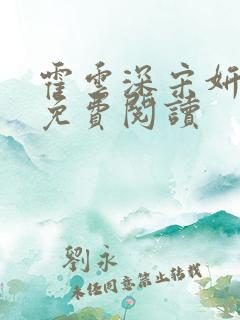 霍雲深宋妍
免費閱讀
劉永
未經同意禁止轉載